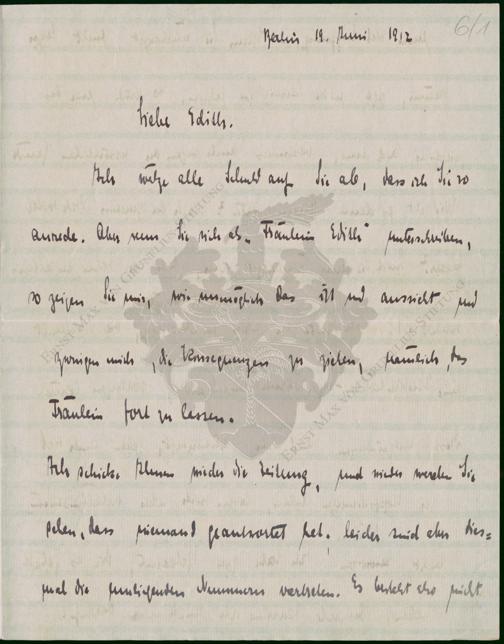 6/1
Berlin 19. Juni 1912
Liebe Edith.
Ich wälze alle Schuld auf Sie ab, dass ich Sie so
anrede. Aber wenn Sie sich als „Fräulein Edith“ unterschreiben,
so zeigen Sie mir, wie unmöglich das ist und aussieht und
zwingen mich, die Konsequenzen zu ziehen, nämlich, das
Fräulein fort zu lassen.
Ich schicke Ihnen wieder die Zeitung, und wieder werden Sie
sehen, dass niemand geantwortet hat. leider sind aber dies=
mal die Nummern vertreten. Es besteht also nicht
ERNST-MAX VON GRUNELIUS-STIFTUNG
ERNST-MAX VON GRUNELIUS-STIFTUNG